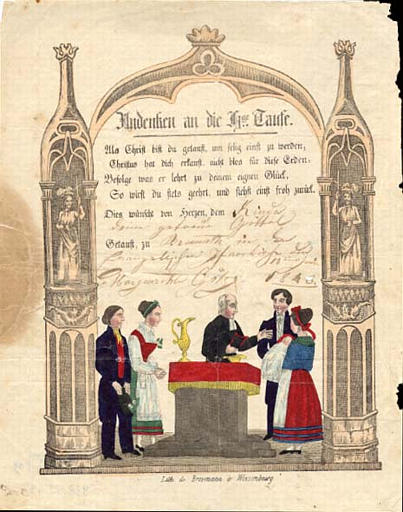 Andenken an die Hge Taufe.
Als Christ bist du getauft, um selig einst zu werden,
Christus hat dich erkauft, nicht blos für diese Erden:
Befolge was er lehrt zu deinem eignen Glück,
So wirst du stets geehrt, und siehst einst froh zurück.
Dies wünscht von Herzen, dem Kinde
Getauft, zu in der
Evangelischen
Margaretha 1843.
Lith. de Brormann à Wissembourg